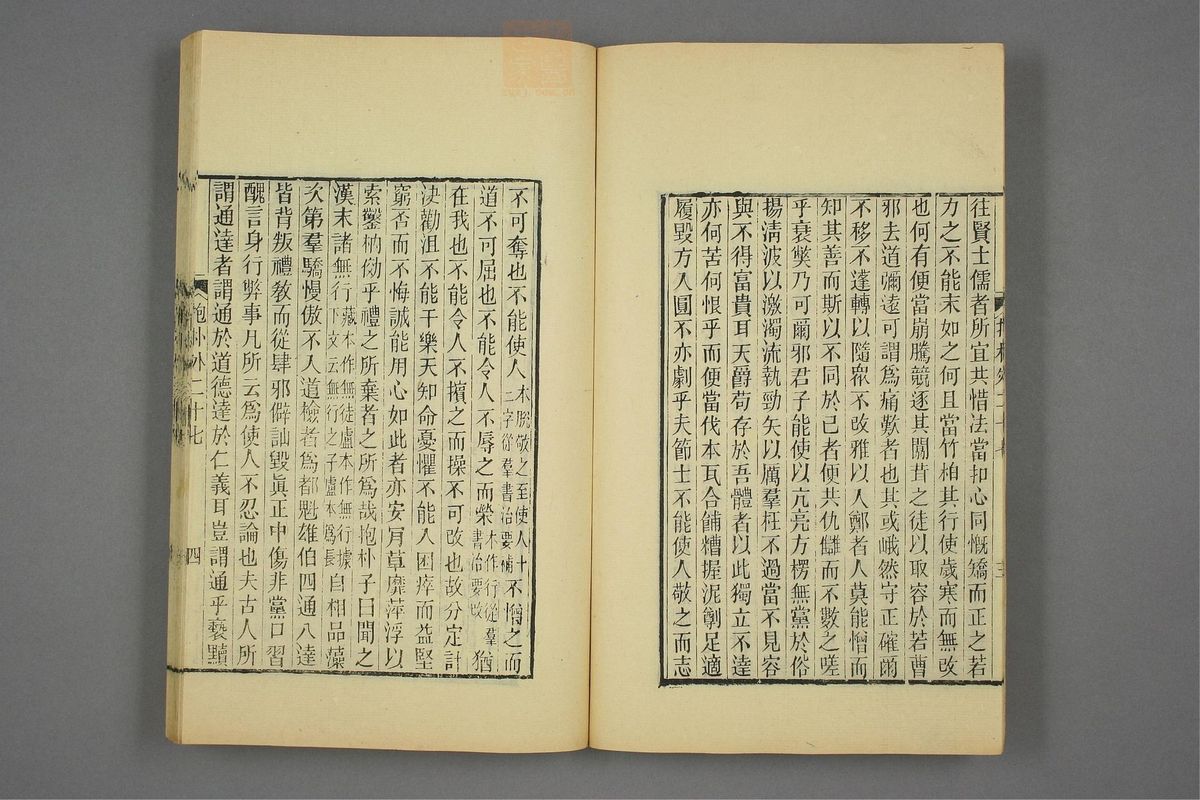 往賢士儒者所宜共惜法當扣心同慨矯而正之若
力之不能末如之何且當竹柏其行使歲寒而無改
也何有便當崩騰競逐其闒茸之徒以取容於若曹
邪去道彌遠可謂爲痛歎者也其或峨然守正確爾
不移不蓬轉以隨衆不改雅以入鄭者人莫能憎而
知其善而斯以不同於己者便共仇讎而不數之嗟
乎衰獘乃可爾邪君子能使以亢亮方楞無黨於俗
揚淸波以激濁流執勁矢以厲羣枉不過當不見容
與不得富貴耳天爵苟存於吾體者以此獨立不達
亦何苦何恨乎而便當伐本瓦合餔糟握泥剸足適
履毀方入圓不亦劇乎夫節士不能使人敬之而志
不可奪也不能使人本脫敬之至使人十二字從羣書治要補不憎之而
道不可屈也不能令人不辱之而榮本作行從羣書治要改猶
在我也不能令人不擯之而操不可改也故分定計
決勸沮不能干樂天知命憂懼不能入困瘁而益堅
窮否而不悔誠能用心如此者亦安肎草靡萍浮以
索鑿枘傚乎禮之所棄者之所爲哉抱朴子曰聞之
漢末諸無行藏本作無徒盧本作無行據下文云無行之子盧本爲長自相品藻
次第羣驕慢傲不入道檢者爲都魁雄伯四通八達
皆背叛禮敎而從肆邪僻訕毀眞正中傷非黨口習
醜言身行弊事凡所云爲使人不忍論也夫古人所
謂通達者謂通於道德達於仁義耳豈謂通乎褻黷
抱朴外二十七
四